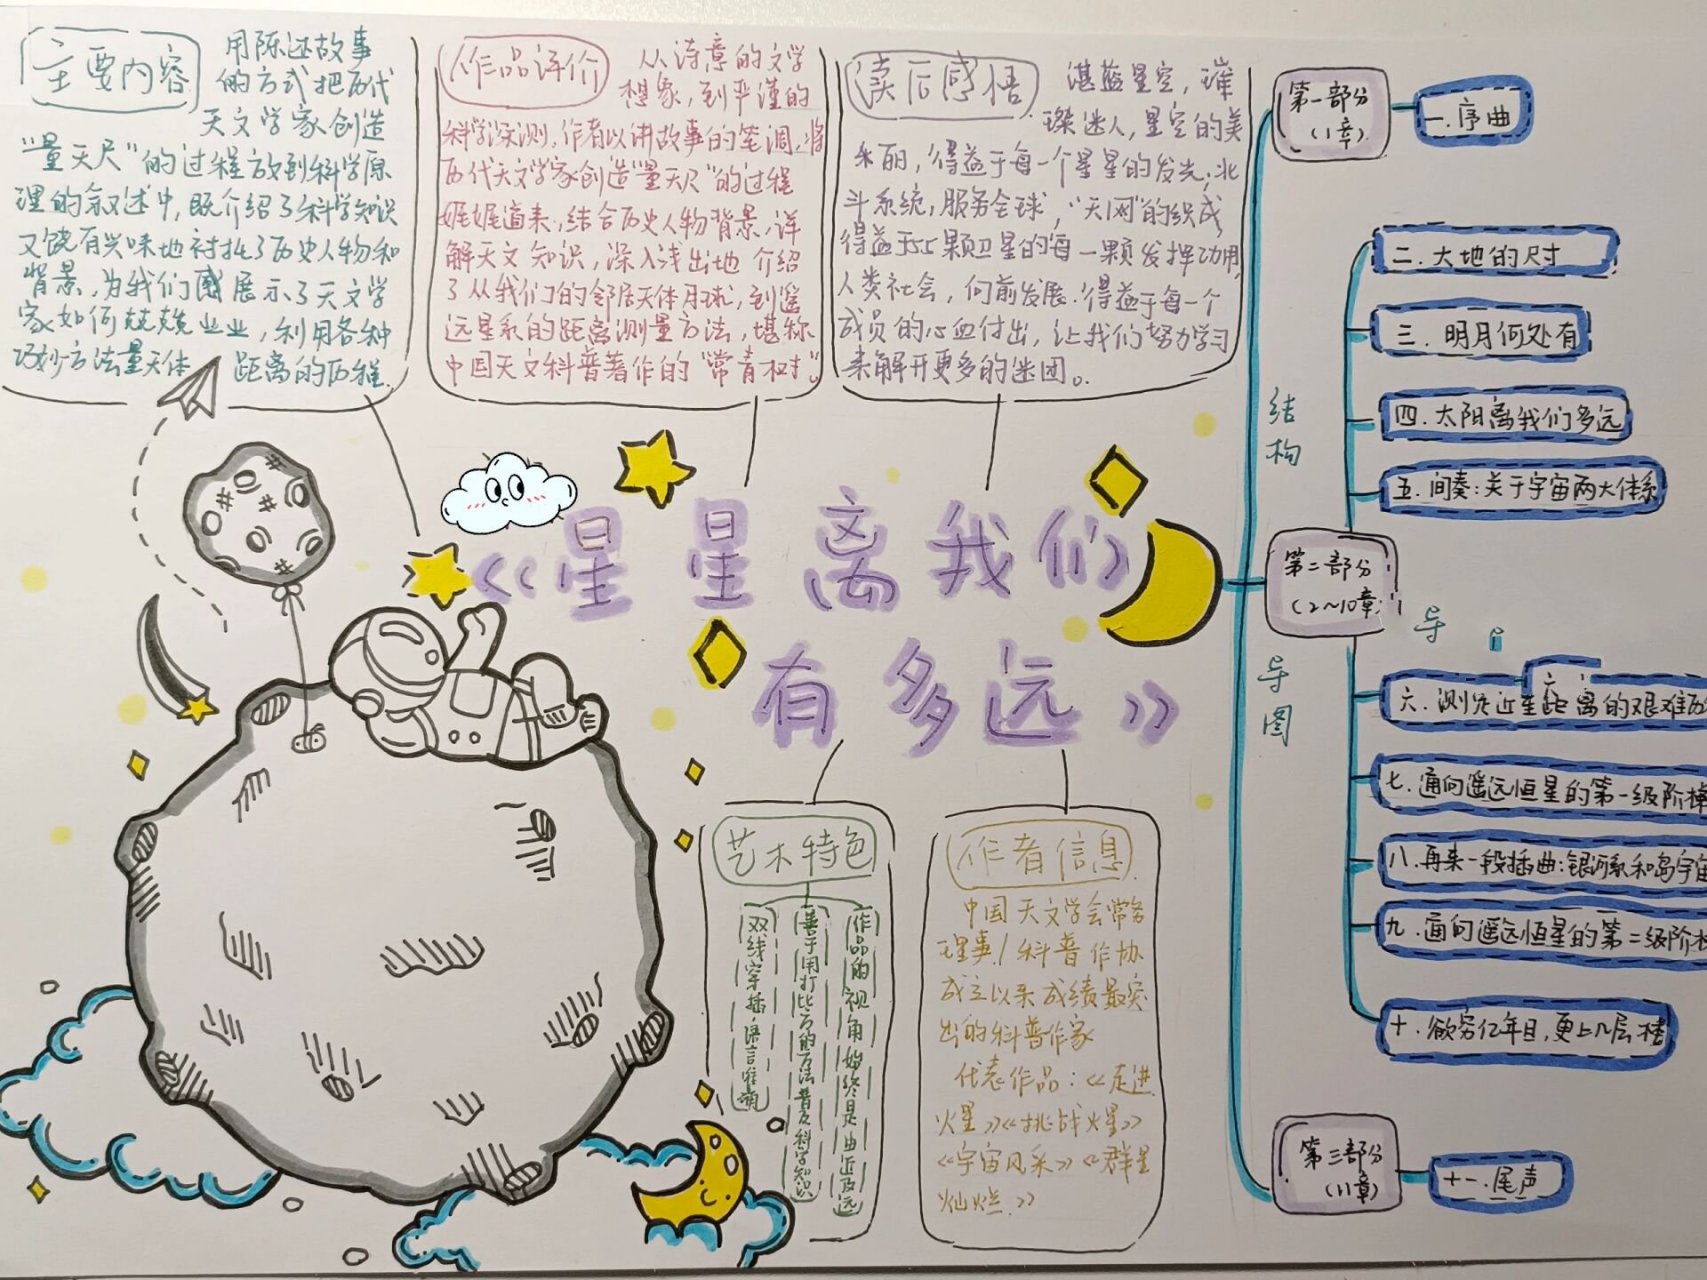 主要内容
用陈述故事
的方式把历代
天文学家创造
“量天尺”的过程放到科学原
理的叙述中,既介绍了科学知识
又饶有兴味地衬托了历史人物和
背景,为我们展示了天文学
家如何兢兢业业,利用各种
巧妙方法量天体
距离的历程.
作品评价
从诗意的文学
想象,到严谨的
科学探测,作者以讲故事的笔调,将
历代天文学家创造“量天尺”的过程
娓娓道来,结合历史人物背景,详
解天文知识,深入浅出地介绍
了从我们的邻居天体月球,到遥
远星系的距离测量方法,堪称
中国天文科普著作的“常青树”。
读后感悟
湛蓝星空,璀
璨迷人,星空的美
丽,得益于每一个星星的发光,北
斗系统,服务全球,“天网”的织成
得益于55颗卫星的每一颗发挥功用,
人类社会,向前发展.得益于每一个
成员的心血付出,让我们努力学习
来解开更多的迷团。
《星星离我们
有多远》
艺术特色
双线穿插,语言准确
善于用打比方的方法普及科学知识
作品的视角始终是由近及远
作者信息
中国天文学会常务
理事/科普作协
成立以来成绩最突
出的科普作家
代表作品:《走进
火星》《挑战火星》
《宇宙风采》《群星
灿烂》
结构
导图
第一部分
(1章)
一.序曲
第二部分
(2~10章)
二.大地的尺寸
三.明月何处有
四.太阳离我们多远
五.间奏:关于宇宙两大体系
导
六.测定近星距离的艰难历
七.通向遥远恒星的第一级阶梯
八.再来一段插曲:银河系和岛宇宙
九.通向遥远恒星的第二级阶梯
十.欲穷亿年目,更上几层楼
第三部分
(11章)
十一.尾声